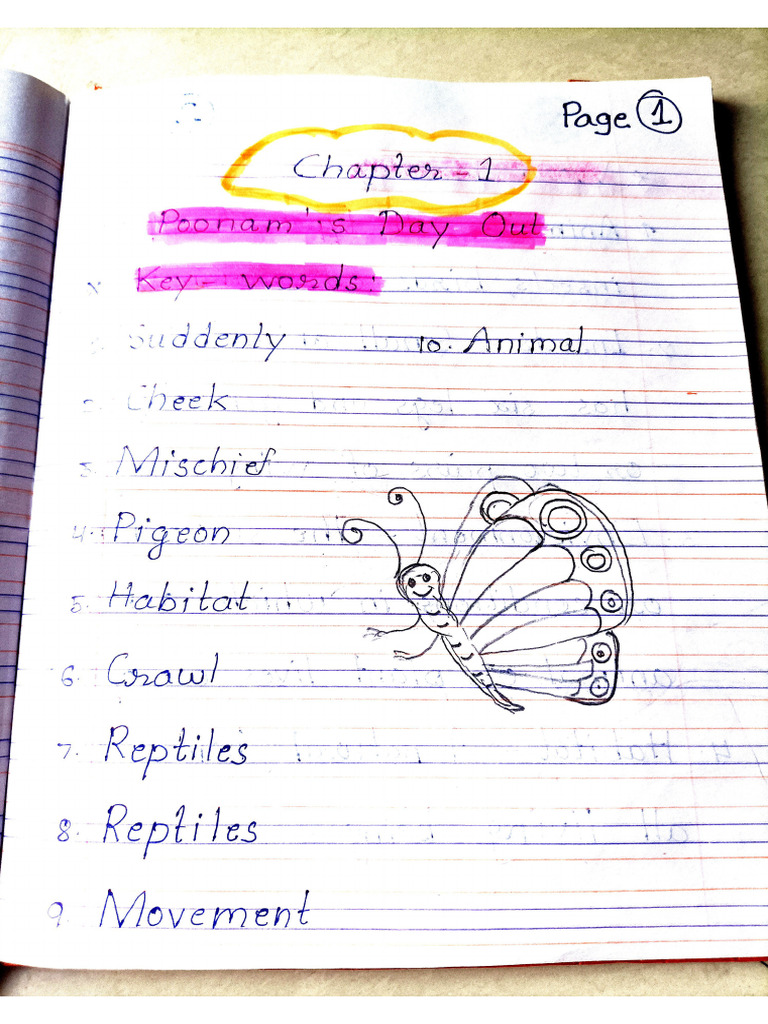 Page 1
Chapter - 1
Poonam's Day Out
Key - words:
Suddenly
2. Cheek
3. Mischief
4. Pigeon
5. Habitat
6. Crawl
7. Reptiles
8. Reptiles
9. Movement
10. Animal